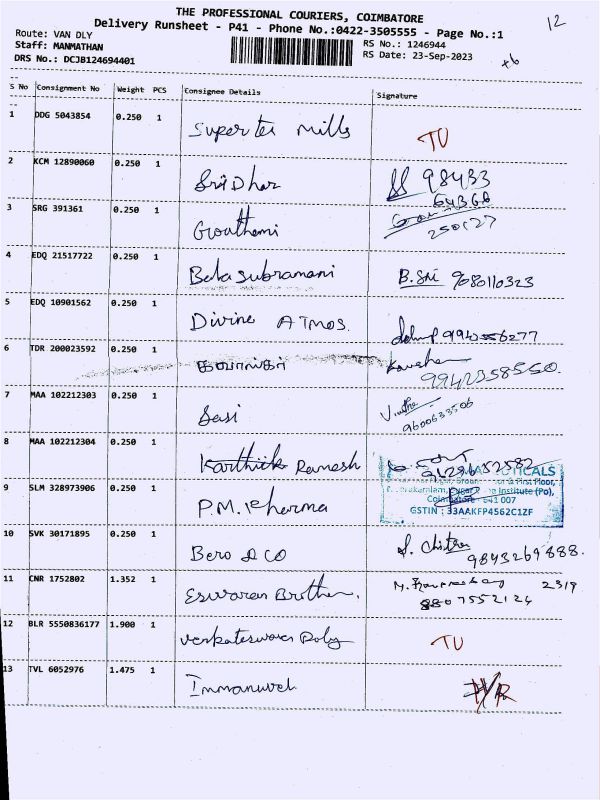 THE PROFESSIONAL COURIERS, COIMBATORE
12
Delivery Runsheet - P41 - Phone No.:0422-3505555 - Page No.:1
Route: VAN DLY
RS No.: 1246944
Staff: MANMATHAN
RS Date: 23-Sep-2023
+6
DRS No.: DCJB124694401
S No Consignment No Weight PCS Consignee Details Signature
1 DDG 5043854 0.250 1 Super tex mills TU
2 KCM 12890060 0.250 1 Sri Dhar 98433
64366
3 SRG 391361 0.250 1 Gowthami
250127
4 EDQ 21517722 0.250 1 Balasubramani B.Sri 9080110323
5 EDQ 10901562 0.250 1 Divine ATMOS. 9940556277
6 TDR 200023592 0.250 1
9942358550.
7 MAA 102212303 0.250 1 Sasi
9600633506
8 MAA 102212304 0.250 1 Karthick Ramesh
9 SLM 328973906 0.250 1 P.M. Pharma
& First Floor,
Institute (Po),
641 007
GSTIN : 33AAKFP4562C1ZF
10 SVK 30171895 0.250 1 Bero & CO S. Chitra
9843269888.
11 CNR 1752802 1.352 1 Eswaran Brothers. 2319
8807552124
12 BLR 5550836177 1.900 1 Venkateswara Poly TU
13 TVL 6052976 1.475 1 Immanuvel